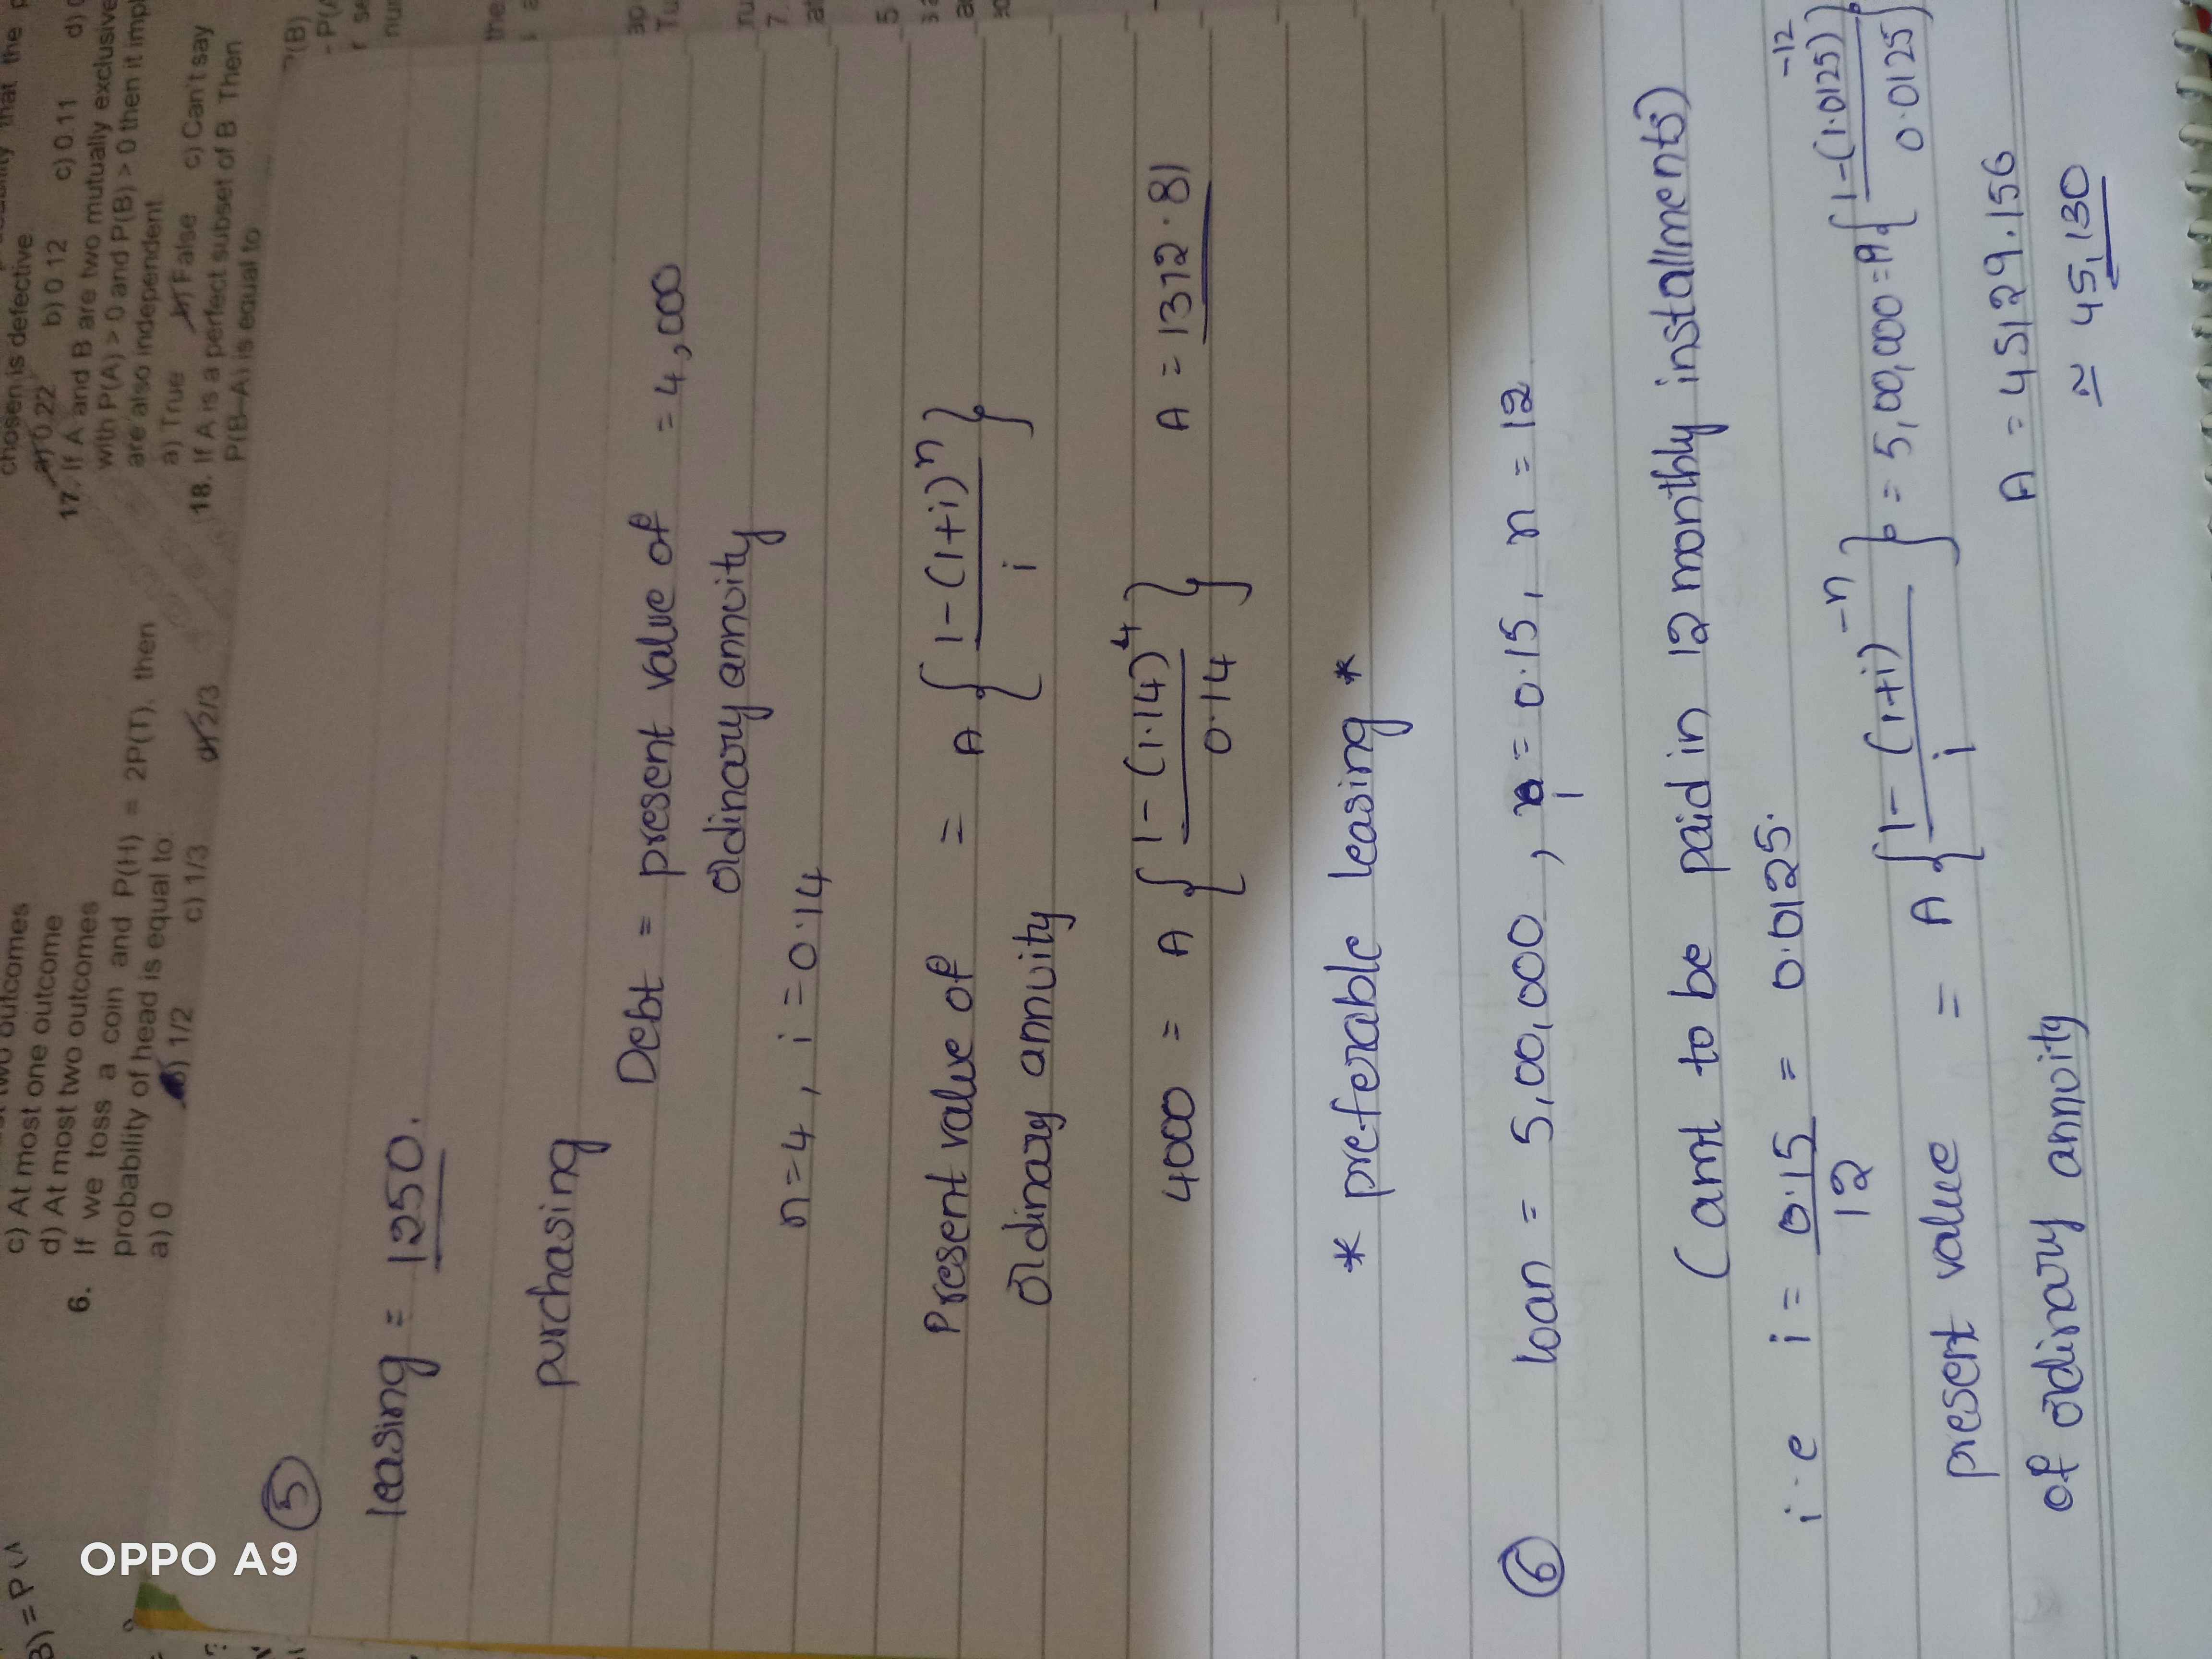 c) At most one outcome
d) At most two outcomes
6. If we toss a coin and P(H) = 2P(T), then
probability of head is equal to
a) 0 b) 1/2 c) 1/3 d) 2/3
chosen is defective
a) 0.22 b) 0.12 c) 0.11 d)
17. If A and B are two mutually exclusive
with P(A) > 0 and P(B) > 0 then it
are also independent
a) True b) False c) Can't say
18. If A is a perfect subset of B Then
P(B–A) is equal to
5
leasing = 1250.
purchasing
Debt = present value of = 4,000
ordinary annuity
n=4, i=0.14
Present value of = A { 1-(1+i)^n / i }
ordinary annuity
4000 = A { 1-(1.14)^4 / 0.14 } A = 1372.81
* preferable leasing *
6 loan = 5,00,000, i=0.15, n=12
(amt to be paid in 12 monthly installments)
i.e i = 0.15 / 12 = 0.0125.
present value = A { 1-(1+i)^-n / i } = 5,00,000 = A { 1-(1.0125)^-12 / 0.0125 }
of ordinary annuity A = 45129.156
≃ 45,130
OPPO A9